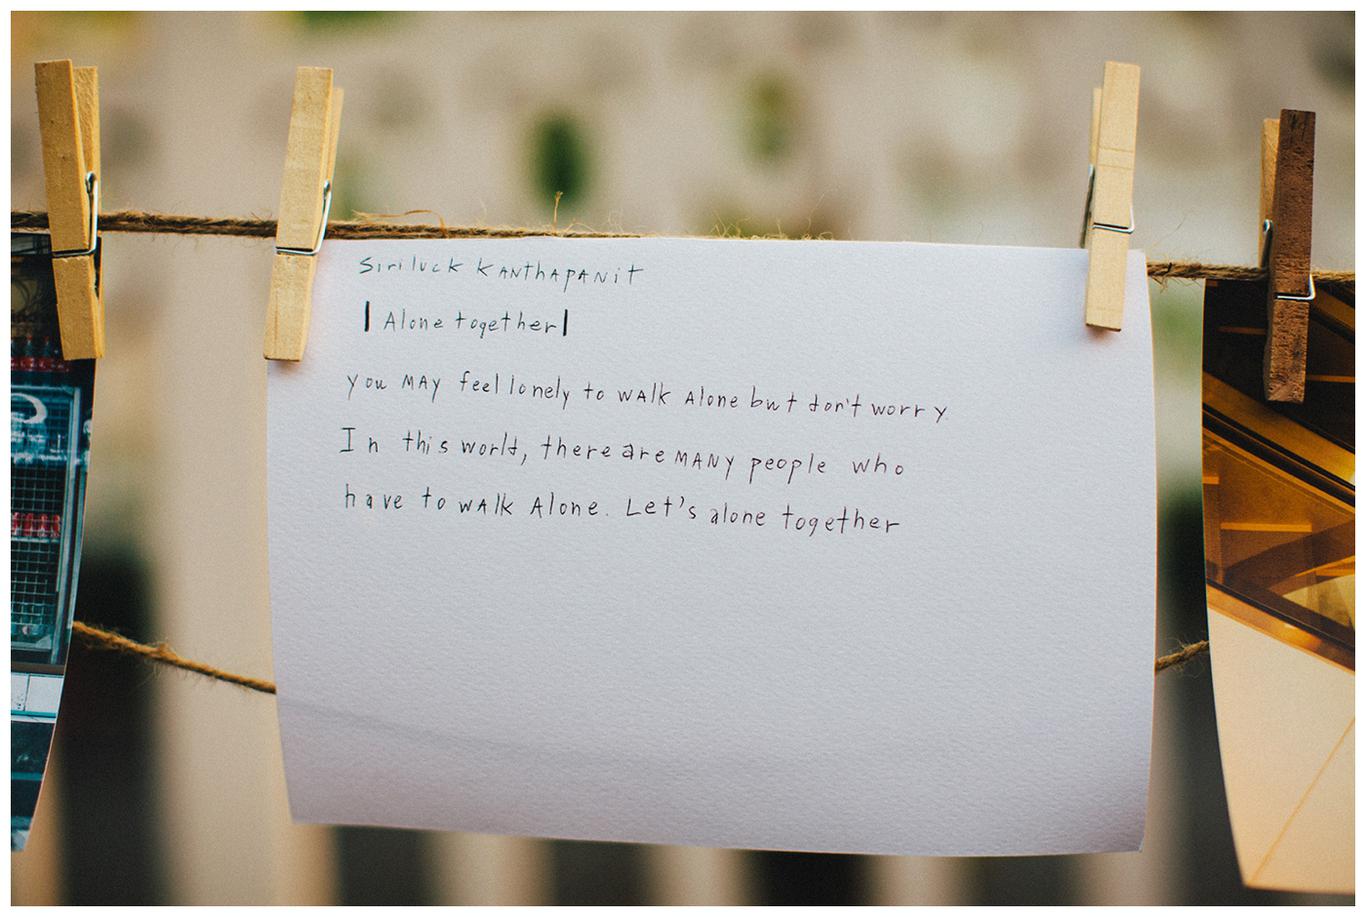 Siriluck KANTHAPANIT
| Alone together |
you MAY feel lonely to WALK Alone but don't worry
In this world, there are MANY people who
have to WALK Alone. Let's alone together